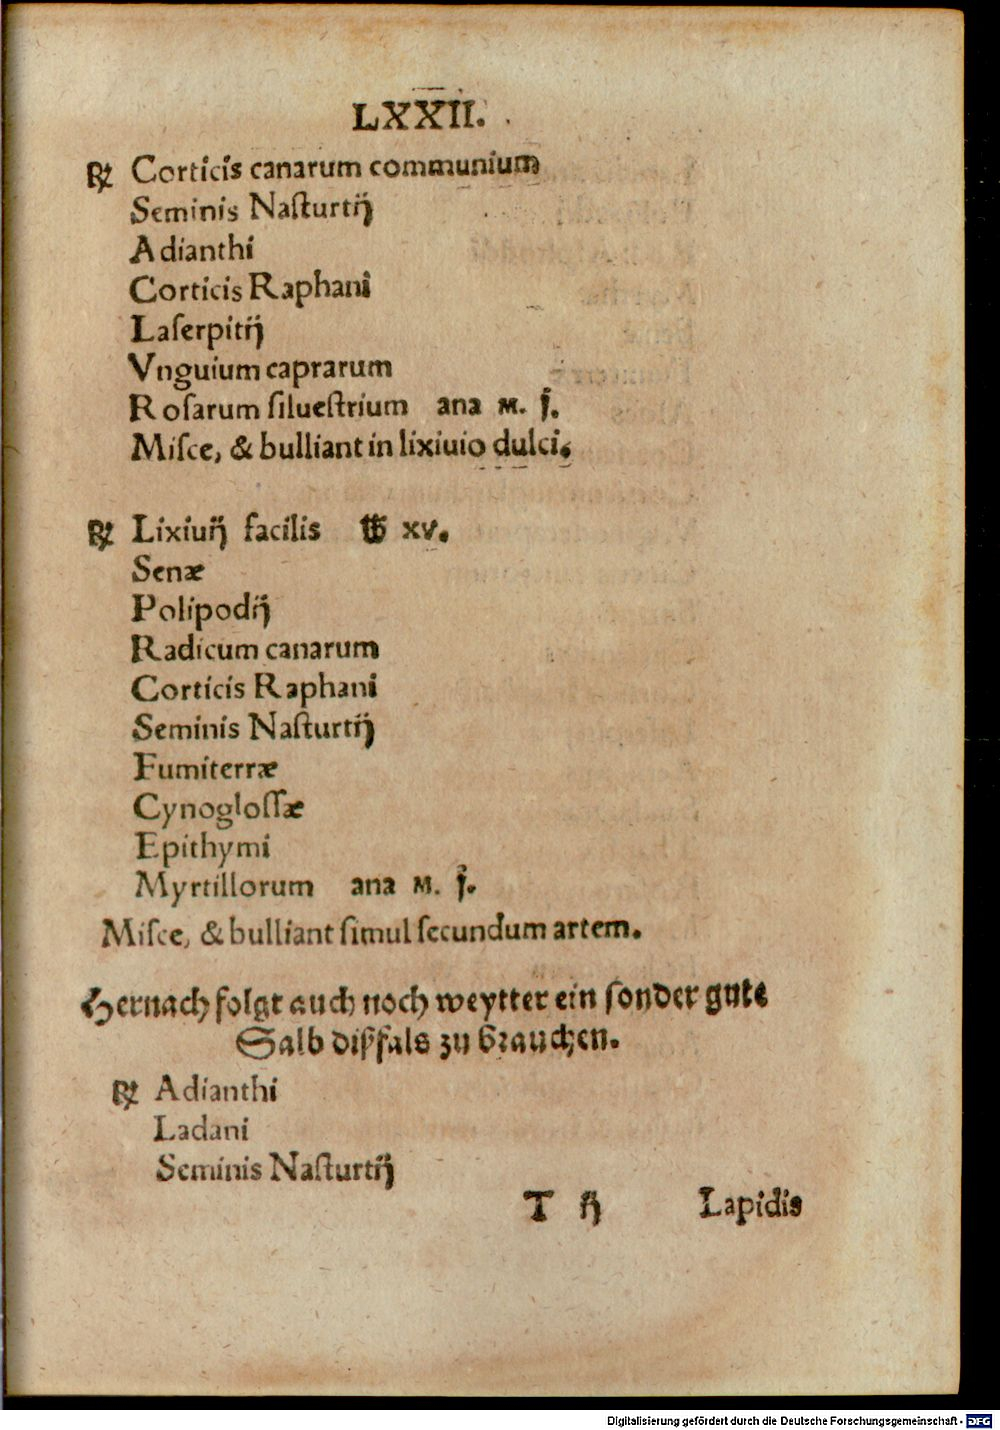 LXXII.
℞ Corticis canarum communium
Seminis Naſturtij
Adianthi
Corticis Raphani
Laſerpitij
Vnguium caprarum
Roſarum ſilueſtrium ana M. j.
Miſce, & bulliant in lixiuio dulci.
℞ Lixiuij facilis ℔ xv.
Senæ
Polipodij
Radicum canarum
Corticis Raphani
Seminis Naſturtij
Fumiterræ
Cynogloſſæ
Epithymi
Myrtillorum ana M. j.
Miſce, & bulliant ſimul ſecundum artem.
Hernach folgt auch noch weytter ein ſonder gute
Salb dißfals zu brauchen.
℞ Adianthi
Ladani
Seminis Naſturtij
T ij Lapidis
Digitalisierung gefördert durch die Deutsche Forschungsgemeinschaft - DFG